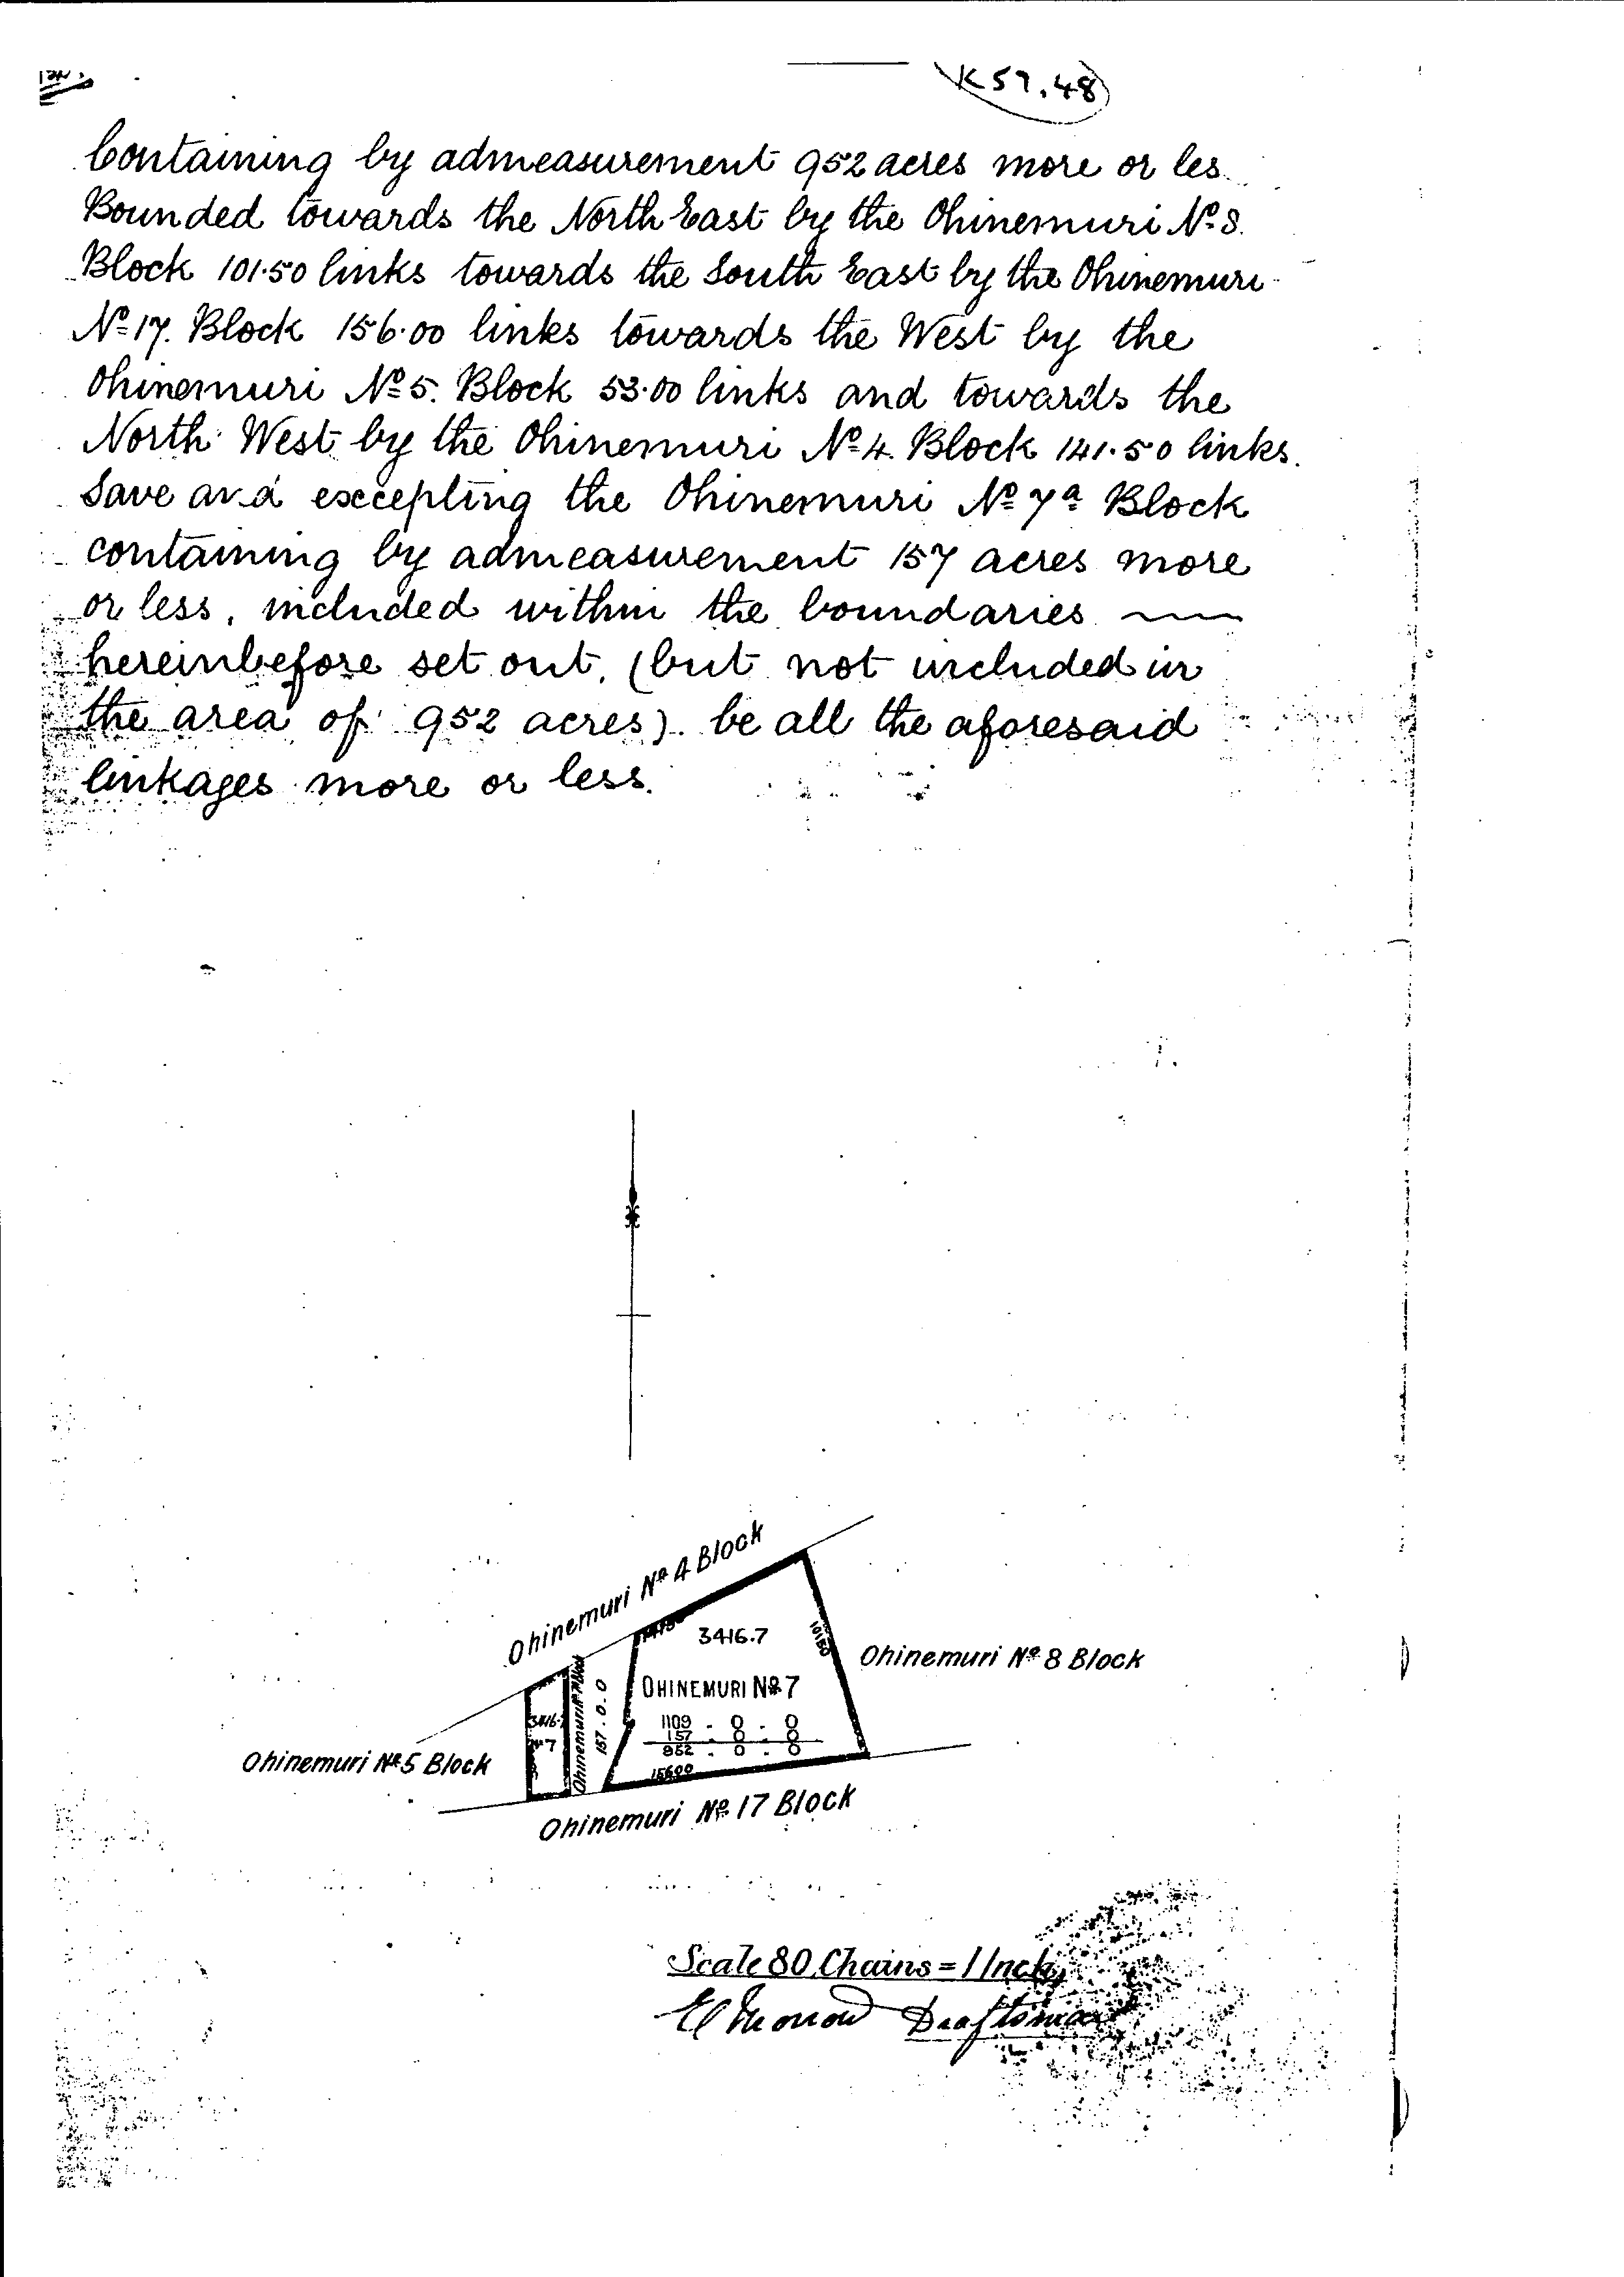 K 57.48
Containing by admeasurement 952 acres more or les
Bounded towards the North East by the Ohinemuri No. 8.
Block 101.50 links towards the South East by the Ohinemuri
No. 17. Block 156.00 links towards the West by the
Ohinemuri No. 5. Block 53.00 links and towards the
North West by the Ohinemuri No. 4. Block 141.50 links.
Save and exccepting the Ohinemuri No. 7a Block
containing by admeasurement 157 acres more
or less, included within the boundaries
hereinbefore set out, (but not included in
the area of 952 acres). be all the aforesaid
linkages more or less.
Ohinemuri No. 4 Block
3416.7
10150
Ohinemuri No. 8 Block
OHINEMURI No. 7
1109 - 0 - 0
157 - 0 - 0
952 - 0 - 0
15600
157.0.0
3416.7
No. 7
Ohinemuri No. 5 Block
Ohinemuri No. 17 Block
Scale 80 Chains = 1 Inch
Draftsman